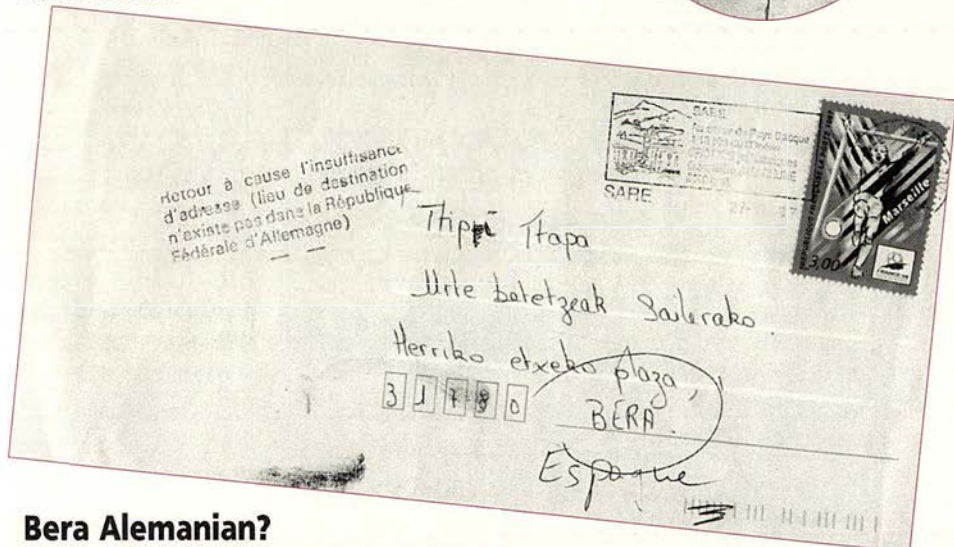 Retour à cause l'insuffisance
d'adresse (lieu de destination
n'existe pas dans la République
Fédérale d'Allemagne)
SARE
Au cœur du Pays Basque
SARE
27-
REPUBLIQUE FRANCAISE
Marseille
3,00
FRANCE 98
Ttipi Ttapa
Urte betetzeak Sailerako.
Herriko etxeko plaza,
31780
BERA.
Espagne
Bera Alemanian?